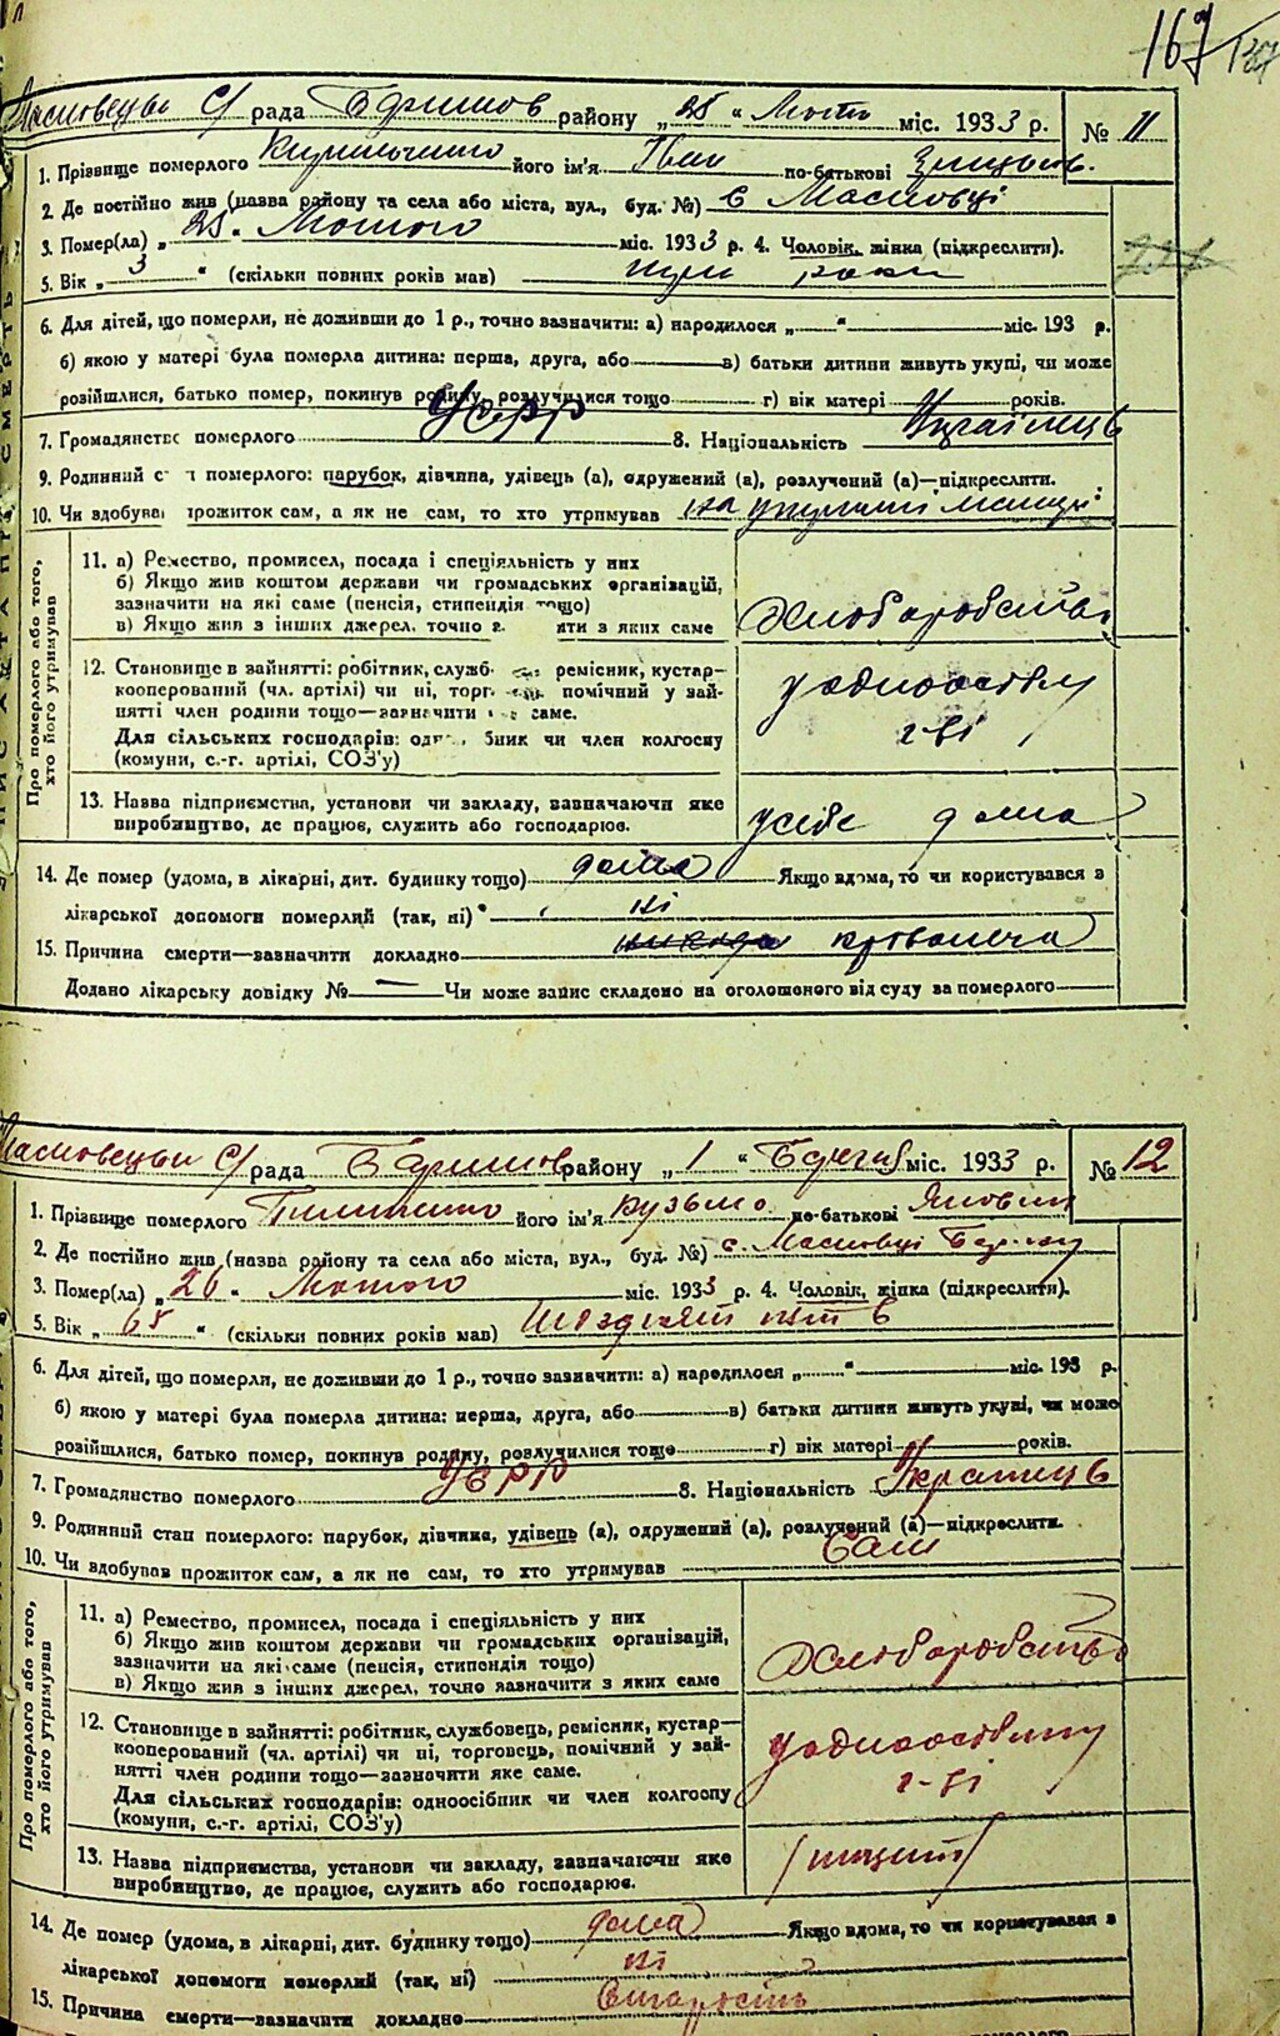 167
С/рада районy „25“ міс. 1933 р. № 11
1. Прізвище померлого його ім'я Іван по-батькові
2. Де постійно жив (назва району та села або міста, вул., буд. №) с Масиовці
3. Помер(ла) „25“ Лютого міс. 1933 р. 4. Чоловік, жінка (підкреслити).
5. Вік „3“ (скільки повних років мав) три роки
6. Для дітей, що померли, не доживши до 1 р., точно зазначити: а) народилося „ “ міс. 193 р.
б) якою у матері була померла дитина: перша, друга, або в) батьки дитини живуть укупі, чи може
розійшлися, батько помер, покинув родину, розлучилися тощо г) вік матері років.
7. Громадянство померлого УСРР 8. Національність Українець
9. Родинний с т померлого: парубок, дівчина, удівець (а), одружений (а), розлучений (а)—підкреслити.
10. Чи здобував прожиток сам, а як не сам, то хто утримував на утриманні
Про померлого або того, хто його утримував
11. а) Ремество, промисел, посада і спеціяльність у них
б) Якщо жив коштом держави чи громадських організацій,
зазначити на які саме (пенсія, стипендія тощо)
в) Якщо жив з інших джерел, точно з ити з яких саме
Хлоборобство
12. Становище в зайнятті: робітник, служб ремісник, кустар—
кооперований (чл. артілі) чи ні, торг помічний у зай-
нятті член родини тощо—зазначити саме.
Для сільських господарів: од бник чи член колгоспу
(комуни, с.-г. артілі, СОЗ'у)
г-ві
13. Назва підприємства, установи чи закладу, зазначаючи яке
виробництво, де працює, служить або господарює.
усебе дома
14. Де помер (удома, в лікарні, дит. будинку тощо) дома Якщо вдома, то чи користувався з
лікарської допомоги померлий (так, ні) ні
15. Причина смерти—зазначити докладно
Додано лікарську довідку № — Чи може запис складено на оголошеного від суду за померлого
С/рада районy „1“ Березня міс. 1933 р. № 12
1. Прізвище померлого його ім'я Кузьма по-батькові
2. Де постійно жив (назва району та села або міста, вул., буд. №) с. Масиовці
3. Помер(ла) „26“ Лютого міс. 1933 р. 4. Чоловік, жінка (підкреслити).
5. Вік „65“ (скільки повних років мав)
6. Для дітей, що померли, не доживши до 1 р., точно зазначити: а) народилося „ “ міс. 193 р.
б) якою у матері була померла дитина: перша, друга, або в) батьки дитини живуть укупі, чи може
розійшлися, батько помер, покинув родину, розлучилися тоще г) вік матері років.
7. Громадянство померлого УСРР 8. Національність Украинець
9. Родинний стан померлого: парубок, дівчина, удівець (а), одружений (а), розлучений (а)—підкреслити.
10. Чи здобував прожиток сам, а як не сам, то хто утримував Сам
Про померлого або того, хто його утримував
11. а) Ремество, промисел, посада і спеціяльність у них
б) Якщо жив коштом держави чи громадських організацій,
зазначити на які саме (пенсія, стипендія тощо)
в) Якщо жив з інших джерел, точно зазначити з яких саме
Хлоборобство
12. Становище в зайнятті: робітник, службовець, ремісник, кустар—
кооперований (чл. артілі) чи ні, торговець, помічний у зай-
нятті член родини тощо—зазначити яке саме.
Для сільських господарів: одноосібник чи член колгоспу
(комуни, с.-г. артілі, СОЗ'у)
г-ві
13. Назва підприємства, установи чи закладу, зазначаючи яке
виробництво, де працює, служить або господарює.
14. Де помер (удома, в лікарні, дит. будинку тощо) дома Якщо вдома, то чи користувався з
лікарської допомоги померлий (так, ні) ні
15. Причина смерти—зазначити докладно Старость